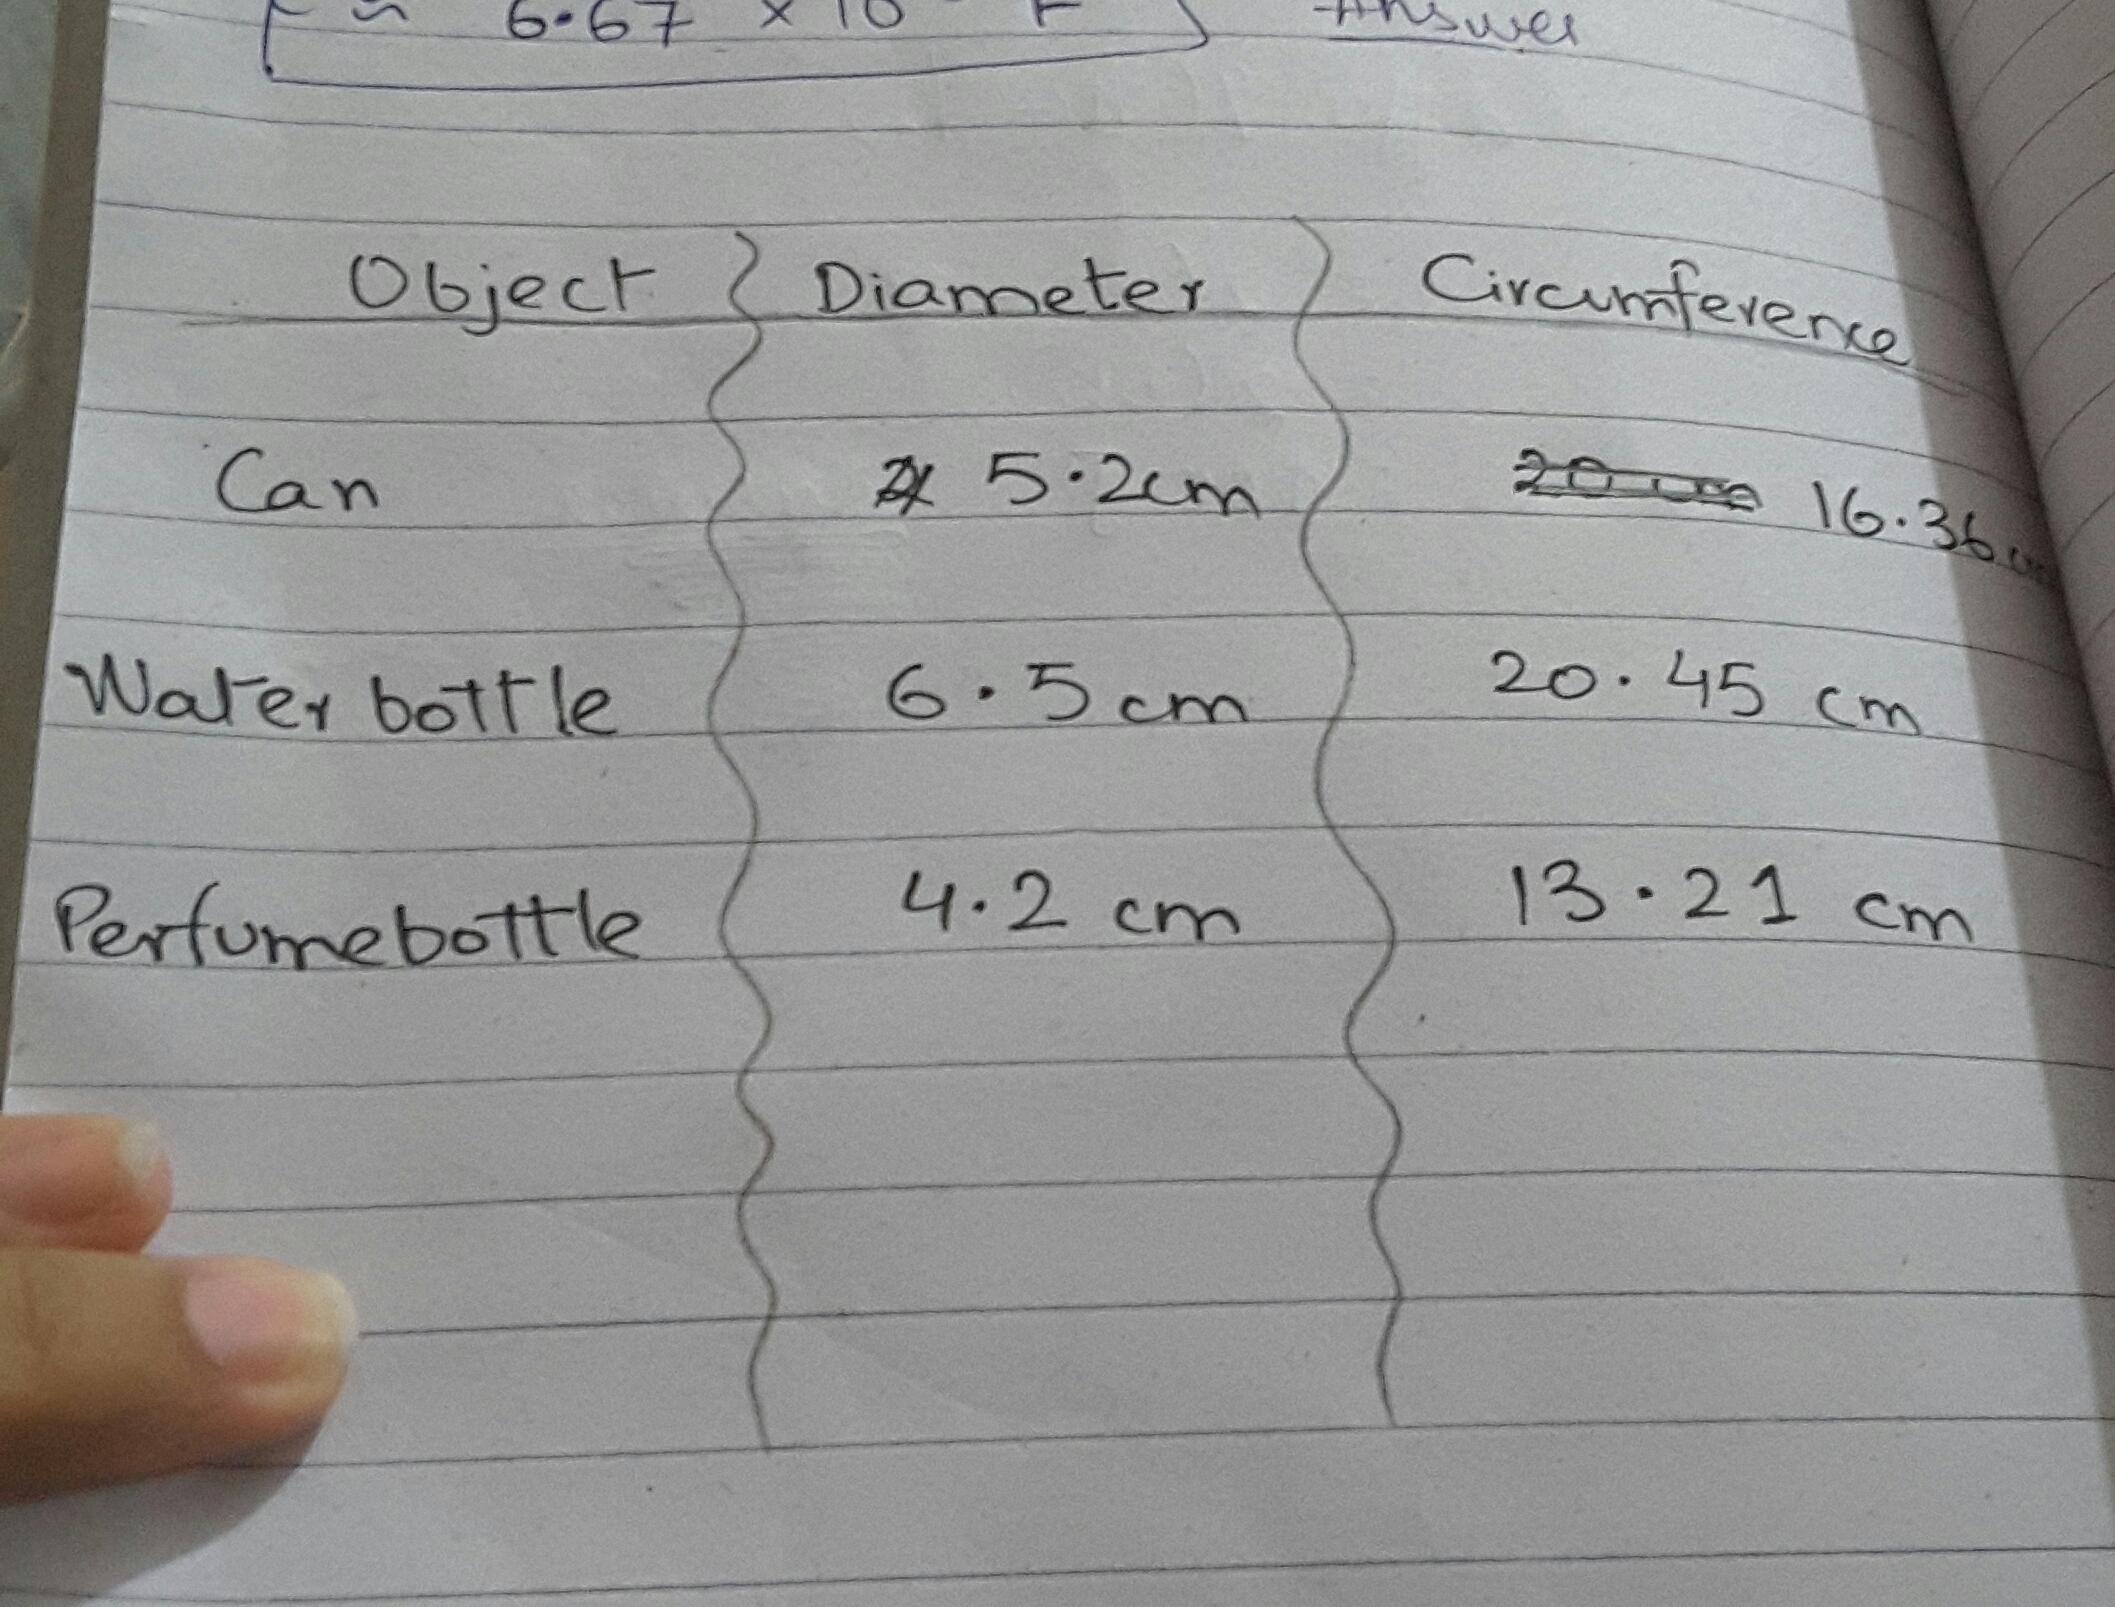 ≈ 6.67 × 10 F Answer
Object Diameter Circumference
Can 5.2cm 16.36 cm
Water bottle 6.5 cm 20.45 cm
Perfumebottle 4.2 cm 13.21 cm